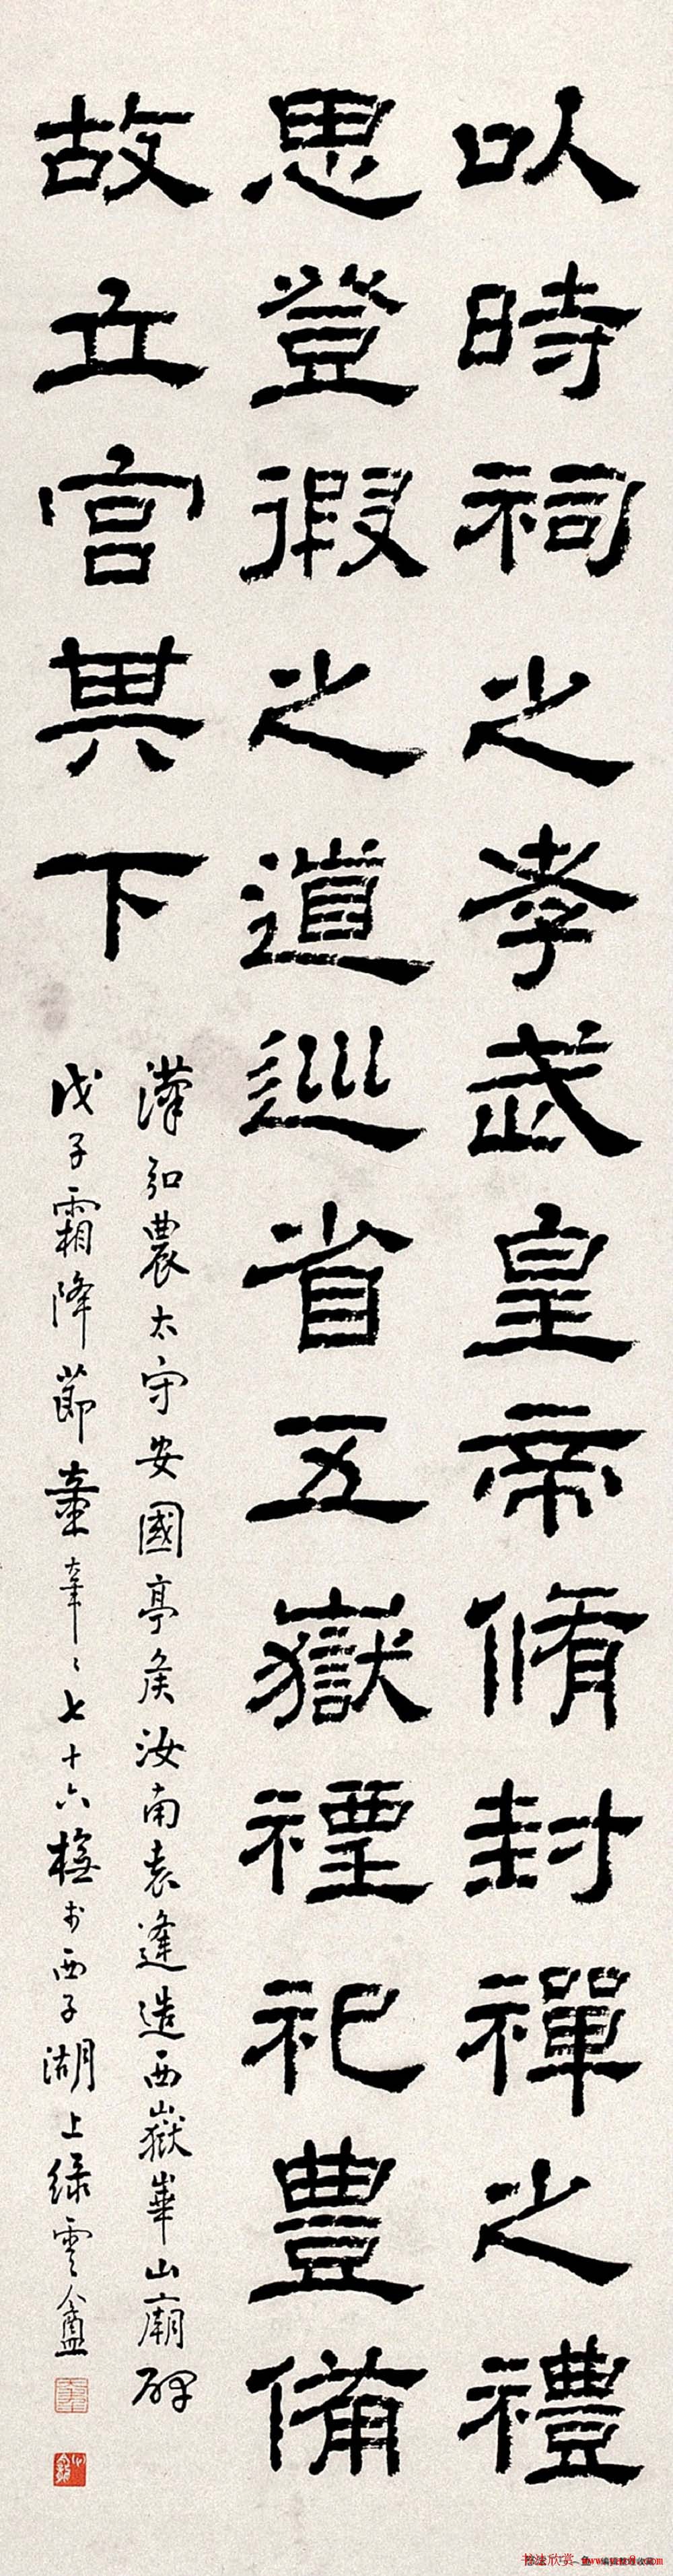 以時祠之孝武皇帝脩封禪之禮
思登徦之道巡省五嶽禋祀豊備
故立宫其下
漢弘農太守安國亭矦汝南袁逢造西嶽華山廟碑
戊子霜降節童年七十六橅于西子湖上緑雲盦